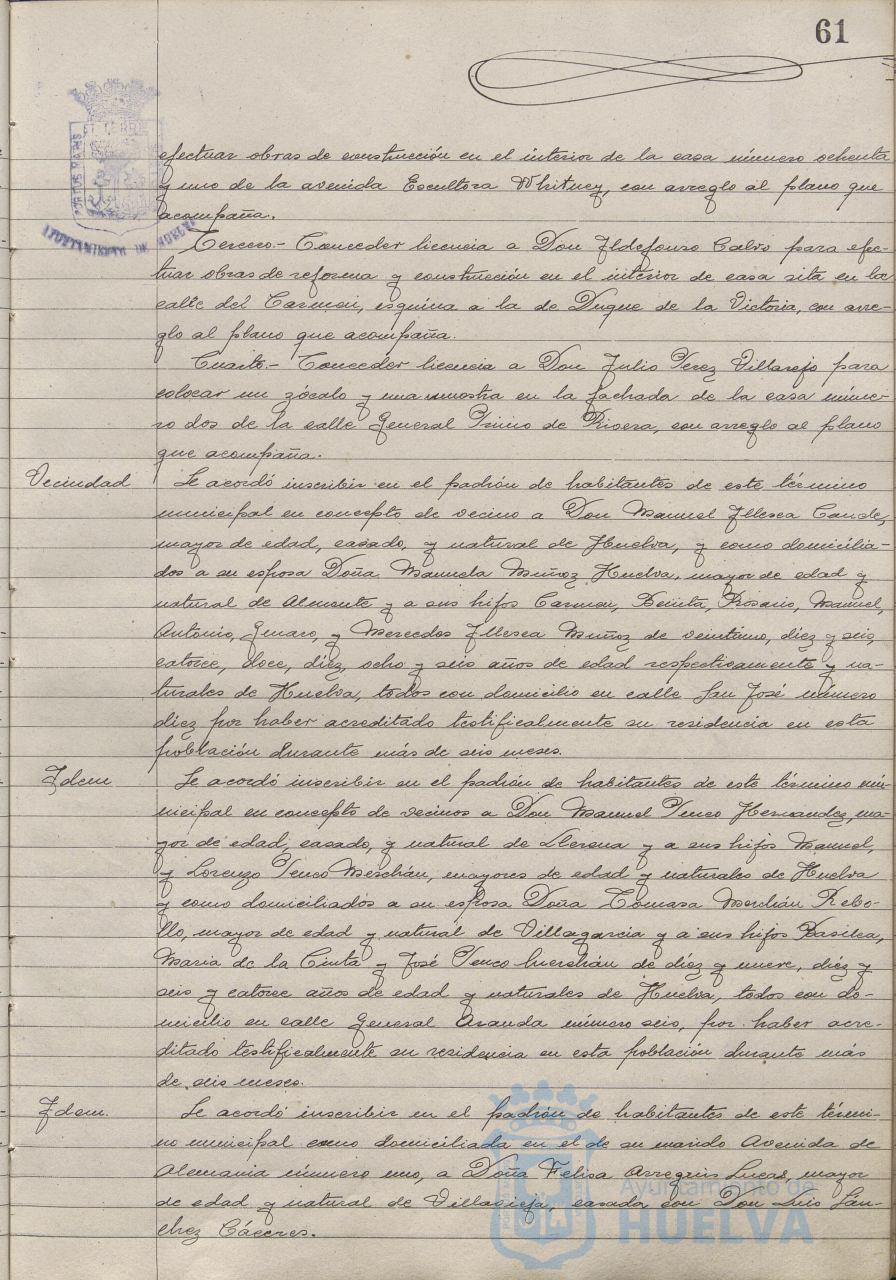 61
efectuar obras de construcción en el interior de la casa número ochenta
y uno de la avenida Escultora Whitney, con arreglo al plano que
acompaña.
Tercero.- Conceder licencia a Don Ildefonso Calvo para efec-
tuar obras de reforma y construcción en el interior de casa sita en la
calle del Carmen, esquina a la de Duque de la Victoria, con arre-
glo al plano que acompaña.
Cuarto.- Conceder licencia a Don Julio Perez Villarejo para
colocar un zócalo y una muestra en la fachada de la casa núme-
ro dos de la calle General Primo de Rivera, con arreglo al plano
que acompaña.
Vecindad Se acordó inscribir en el padrón de habitantes de este término
municipal en concepto de vecino a Don Manuel Illesca Cande,
mayor de edad, casado, y natural de Huelva, y como domicilia-
dos a su esposa Doña Manuela Muñoz Huelva, mayor de edad y
natural de Almonte y a sus hijos Carmen, Benita, Rosario, Manuel,
Antonio, Genaro, y Mercedes Illesca Muñoz de veintiuno, diez y seis,
catorce, doce, diez, ocho y seis años de edad respectivamente y na-
turales de Huelva, todos con domicilio en calle San José número
diez por haber acreditado testificalmente su residencia en esta
población durante más de seis meses.
Idem Se acordó inscribir en el padrón de habitantes de este término mu-
nicipal en concepto de vecinos a Don Manuel Penco Hernandez, ma-
yor de edad, casado, y natural de Llerena y a sus hijos Manuel,
y Lorenzo Penco Merchán, mayores de edad y naturales de Huelva
y como domiciliados a su esposa Doña Tomasa Merchán Rebo-
llo, mayor de edad y natural de Villagarcia y a sus hijos Basilea,
Maria de la Cinta y José Penco Merchán de diez y nueve, diez y
seis y catorce años de edad y naturales de Huelva, todos con do-
micilio en calle General Aranda número seis, por haber acre-
ditado testificalmente su residencia en esta población durante más
de seis meses.
Idem. Se acordó inscribir en el padrón de habitantes de este térmi-
no municipal como domiciliada en el de su marido Avenida de
Alemania número uno, a Doña Felisa Arreguis Lucas, mayor
de edad y natural de Villavieja, casada con Don Luis Sán-
chez Cáceres.
AYUNTAMIENTO DE HUELVA
Ayuntamiento de
HUELVA